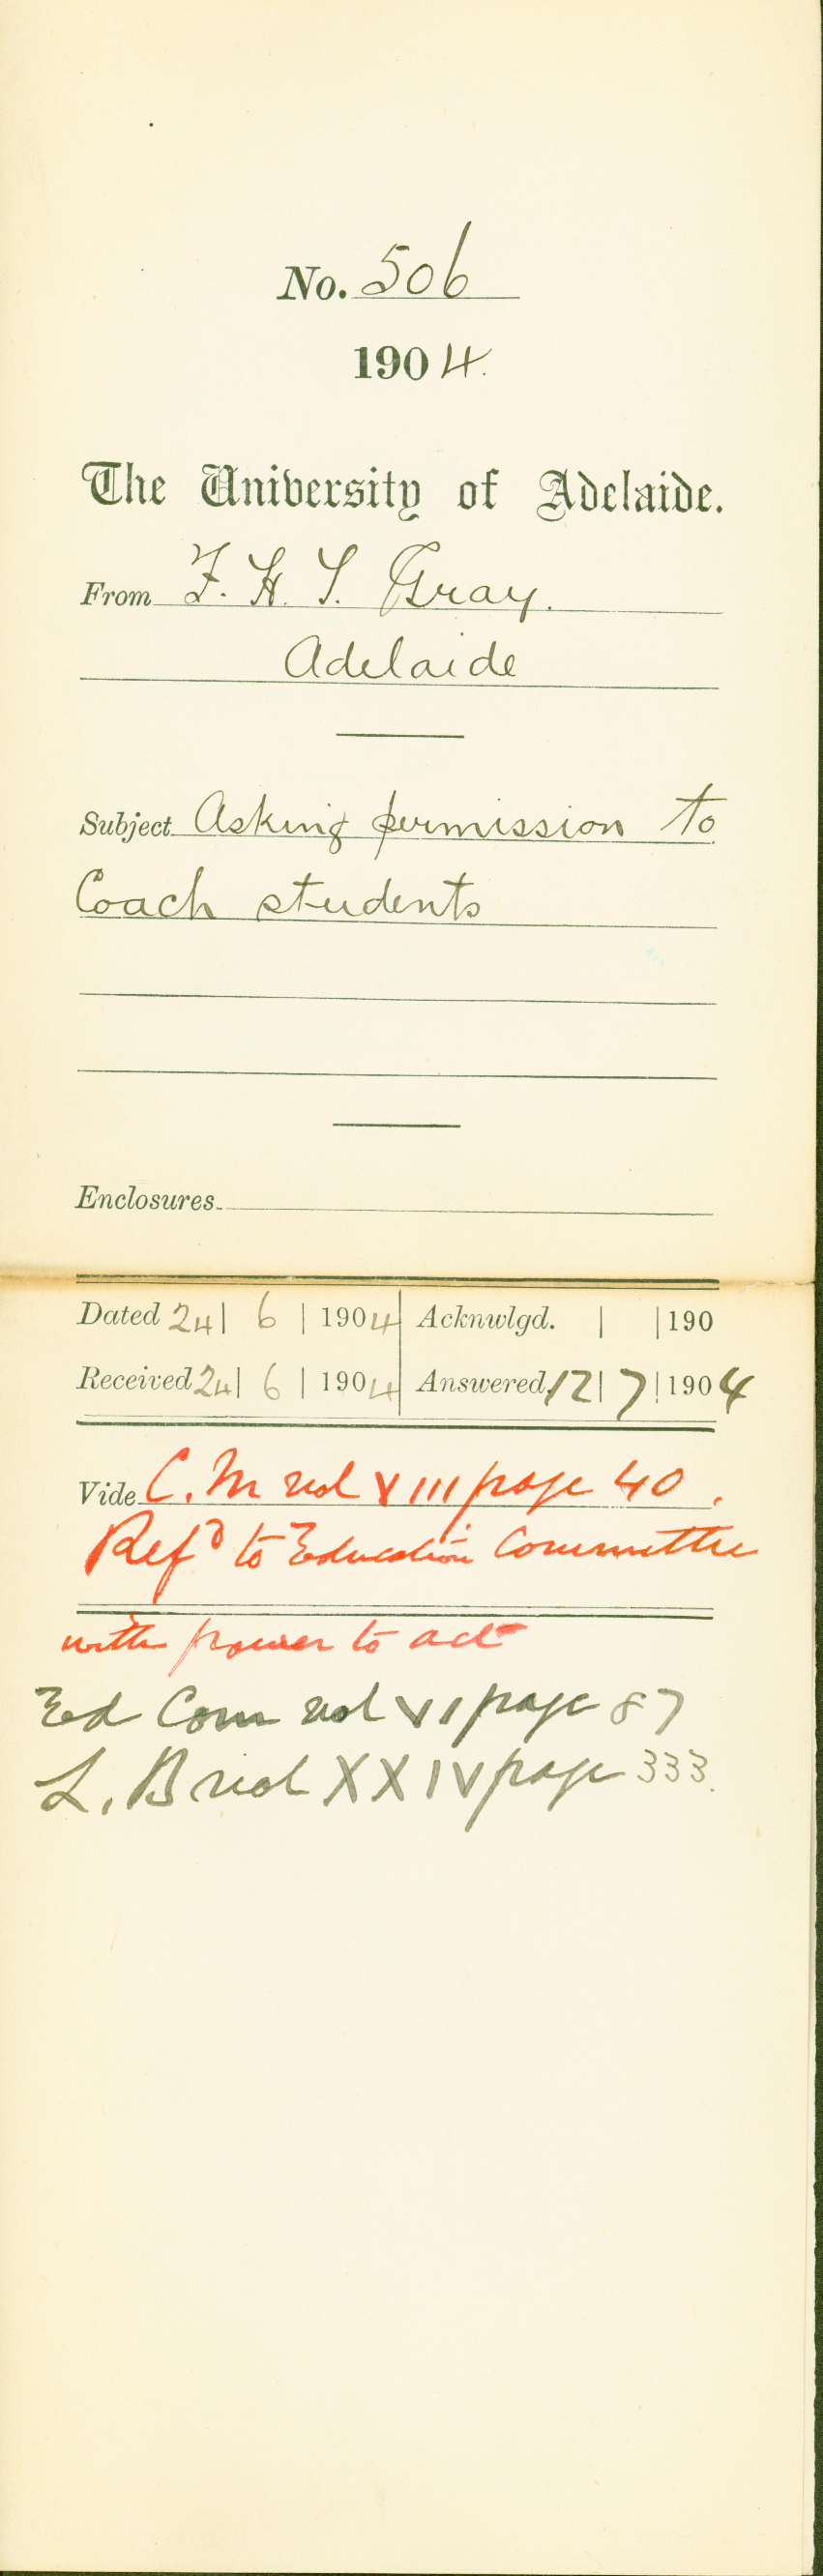 No. 506
1904.
The University of Adelaide.
From F. H. S. Gray.
Adelaide
Subject Asking permission to
Coach students
Enclosures
Dated 24 | 6 | 1904 Acknwlgd. | | 190
Received 24 | 6 | 1904 Answered 12 | 7 | 1904
Vide C. M vol XIII page 40.
Refd to Education Committee
with power to act
Ed Com vol VI page 87
L. B vol XXIV page 333.